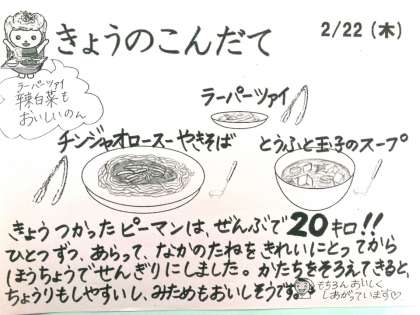 きょうのこんだて
2/22 (木)
ラーパーツァイ
辣白菜も
おいしいのん
ラーパーツァイ
チンジャオロースーやきそば
とうふと玉子のスープ
きょうつかったピーマンは、ぜんぶで20キロ!!
ひとつずつ、あらって、なかのたねをきれいにとってから
ほうちょうでせんぎりにしました。かたちをそろえてきると、
ちょうりもしやすいし、みためもおいしそうです。
もちろんおいしく
しあがっています♡